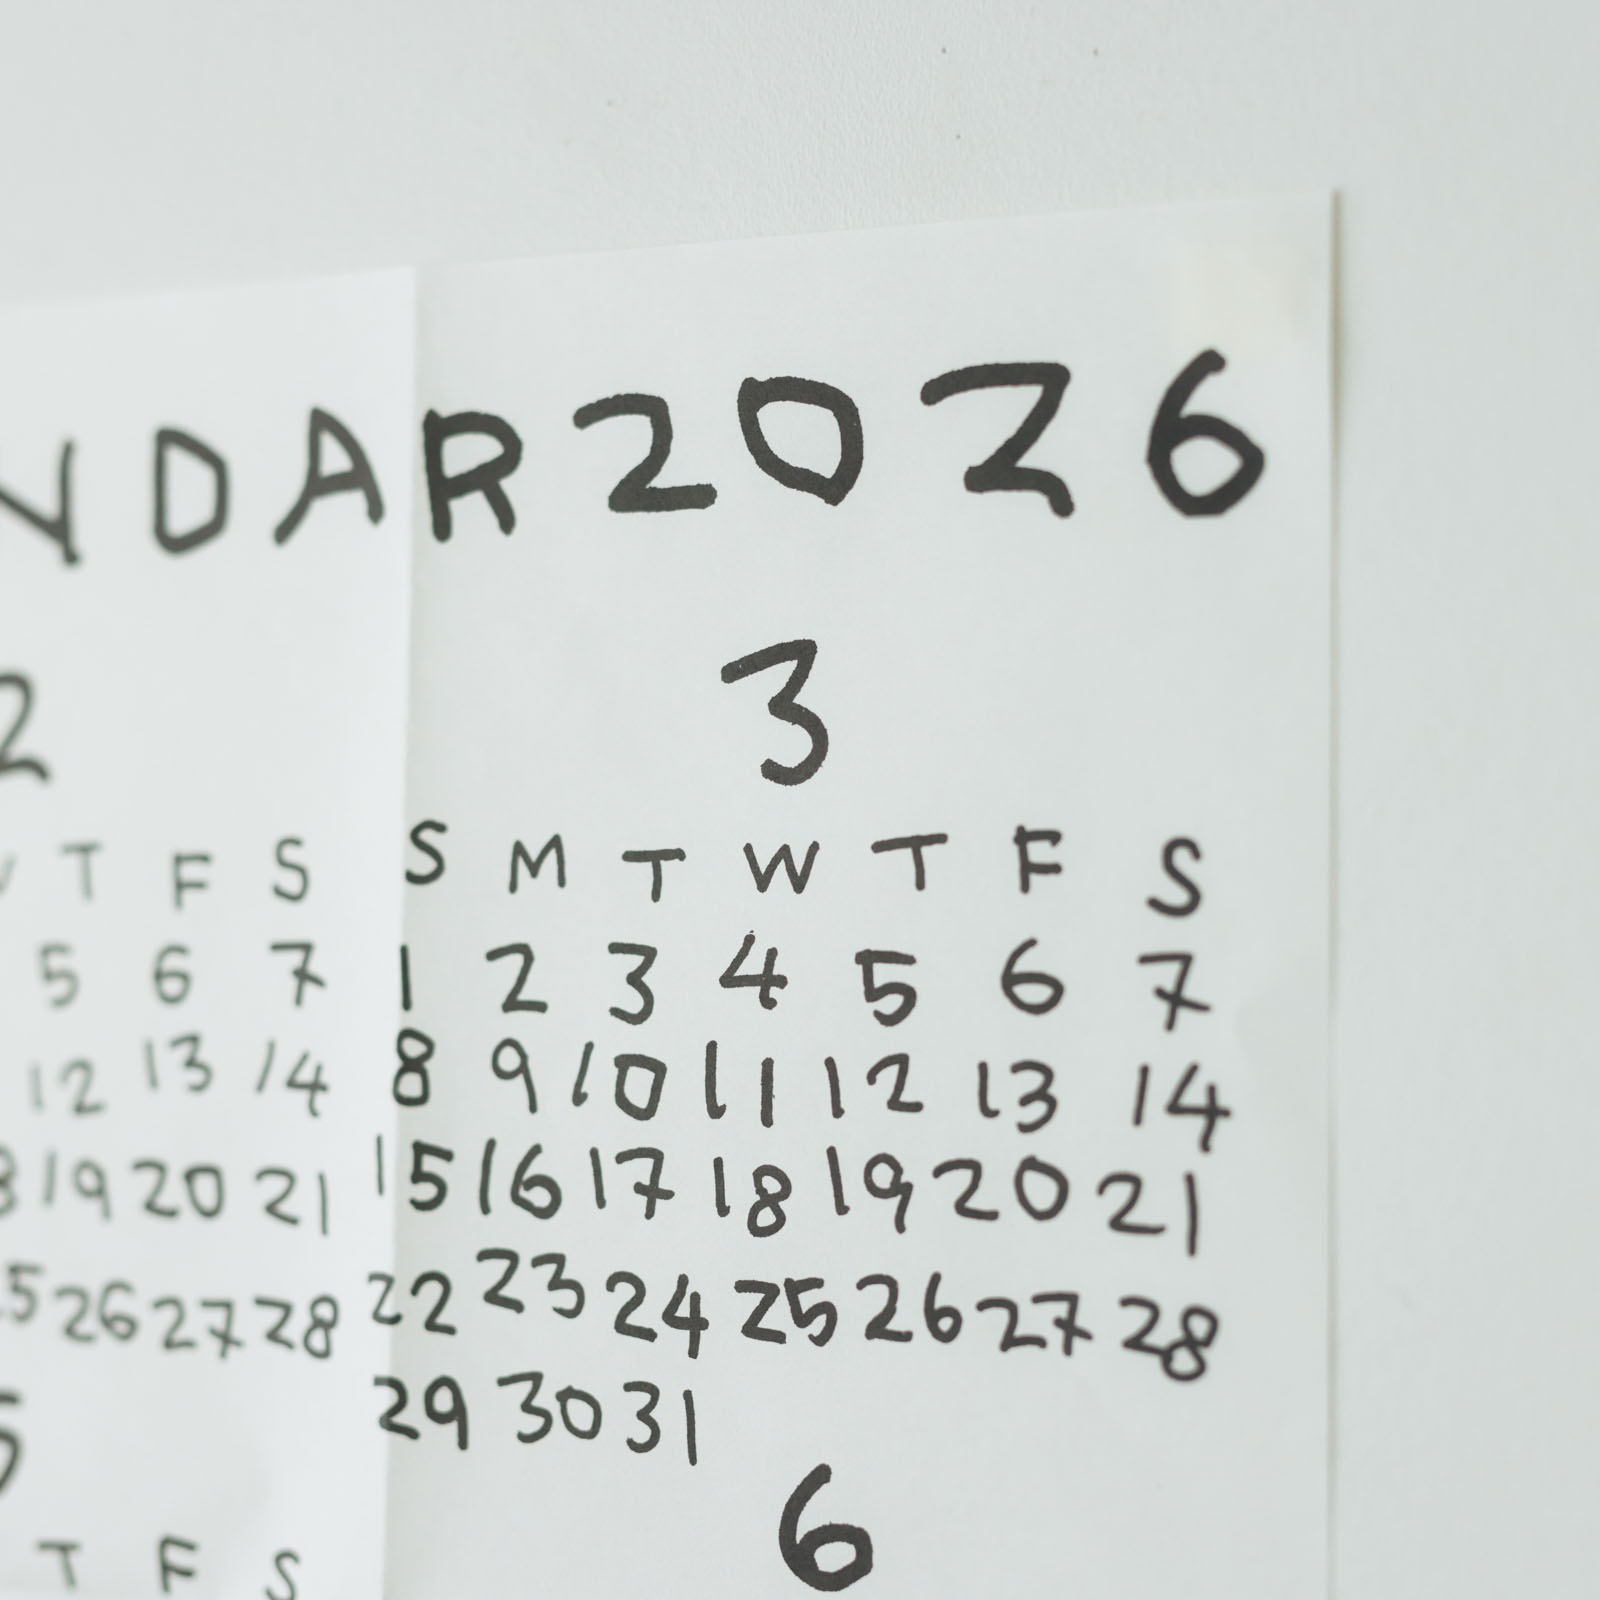 NDAR 2026
2 3
T F S S M T W T F S
5 6 7 1 2 3 4 5 6 7
12 13 14 8 9 10 11 12 13 14
19 20 21 15 16 17 18 19 20 21
26 27 28 22 23 24 25 26 27 28
29 30 31
5 6
T F S